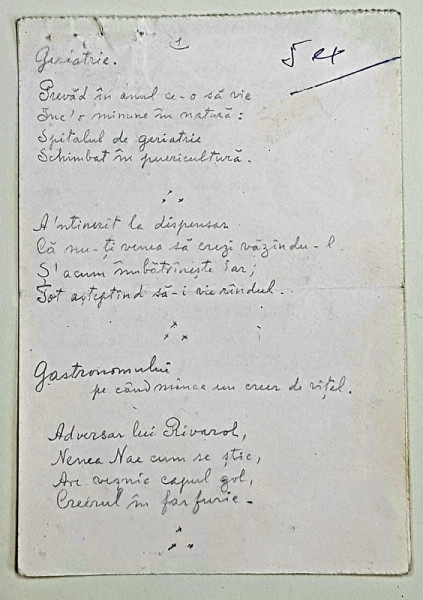 1
5 ex
Geriatrie.
Prevăd în anul ce-o să vie
Înc'o minune în natură:
Spitalul de geriatrie
Schimbat în puericultură.
A'ntinerit la dispensar
Că nu-ți venea să crezi văzîndu-l.
Ș'acum îmbătrînește iar;
Tot așteptînd să-i vie rîndul.
Gastronomului
pe când mânca un creer de vițel.
Adversar lui Rivarol,
Nenea Nae cum se știe,
Are veșnic capul gol,
Creerul în farfurie.